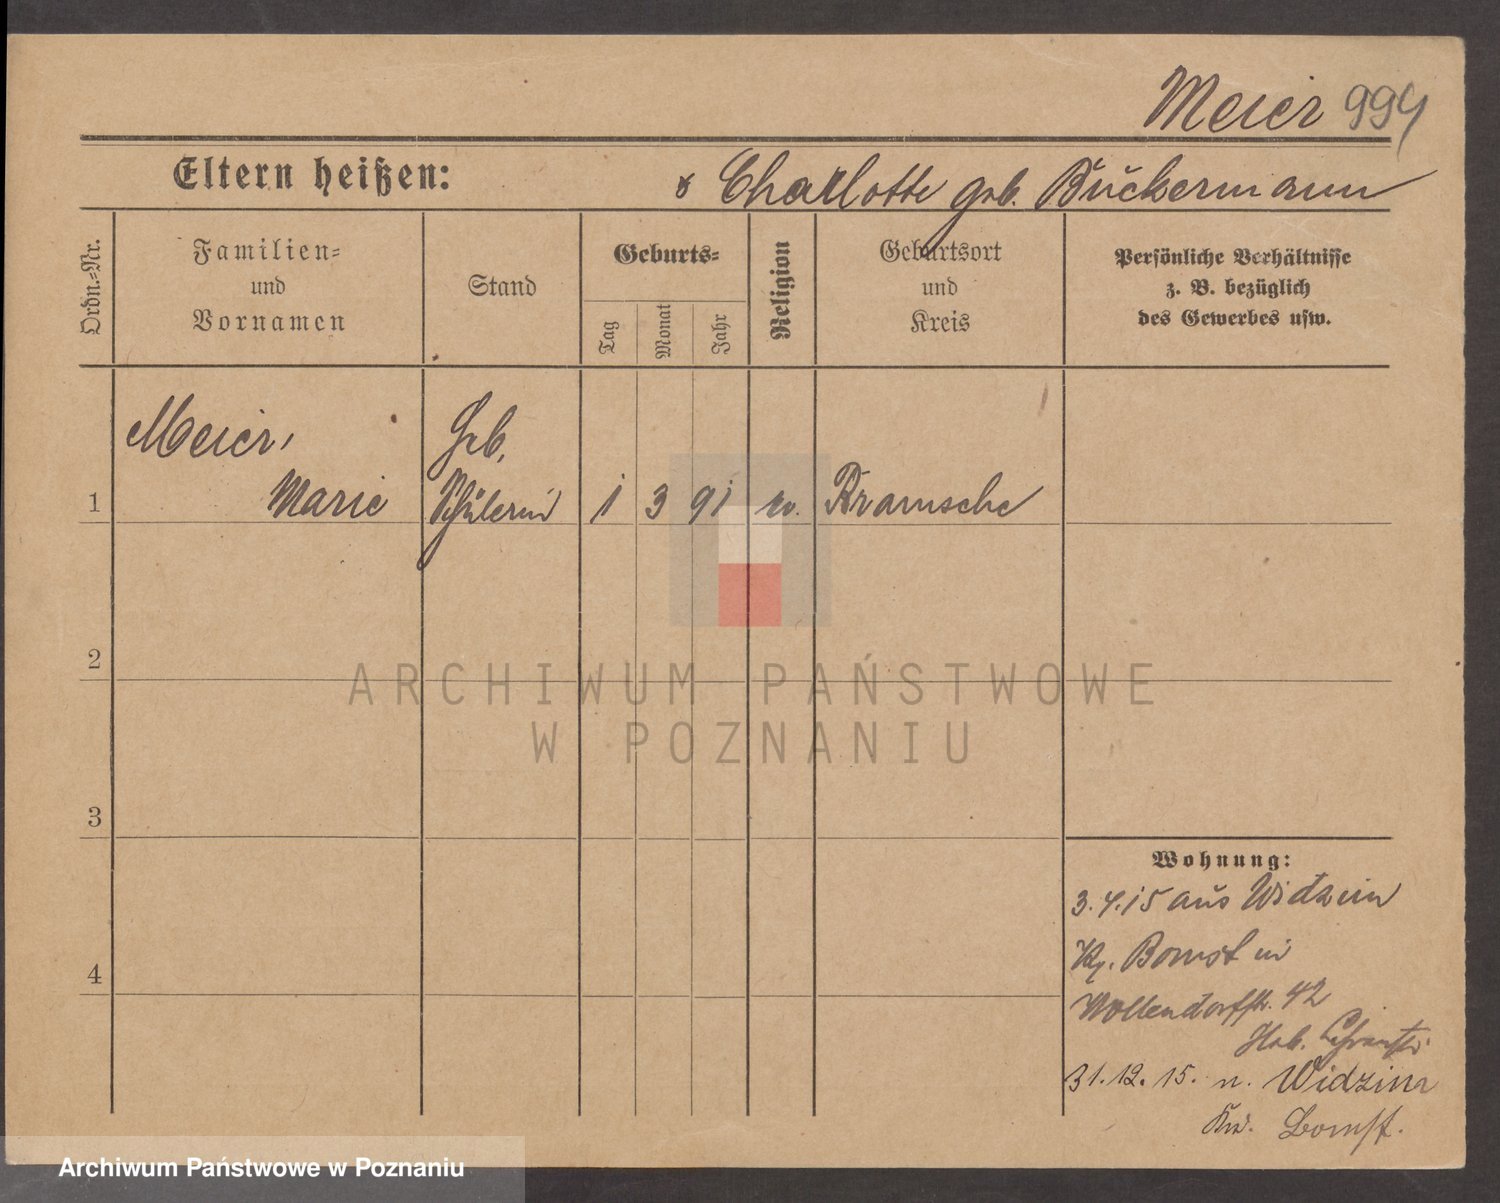 Meier 994
Eltern heißen:
& Charlotte geb. Buckermann
Ordn.=Nr.
Familien=
und
Vornamen
Stand
Geburts=
Tag
Monat
Jahr
Religion
Geburtsort
und
Kreis
Persönliche Verhältnisse
z. B. bezüglich
des Gewerbes usw.
Meier,
Marie
Schülerin
1
1 3 91 ev. Bramsche
2
ARCHIWUM PAŃSTWOWE
W POZNANIU
3
4
Wohnung:
3.4.15 aus Widzim
Kr. Bomst in
Wollendorffstr. 42
31.12.15. n. Widzim
Kr. Bomst.
Archiwum Państwowe w Poznaniu